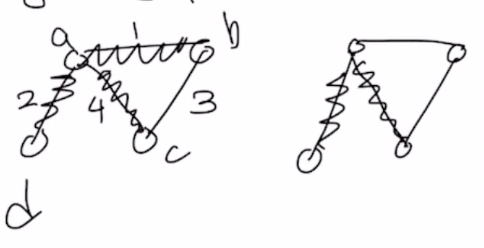 a 1 b
2 4 3
c
d